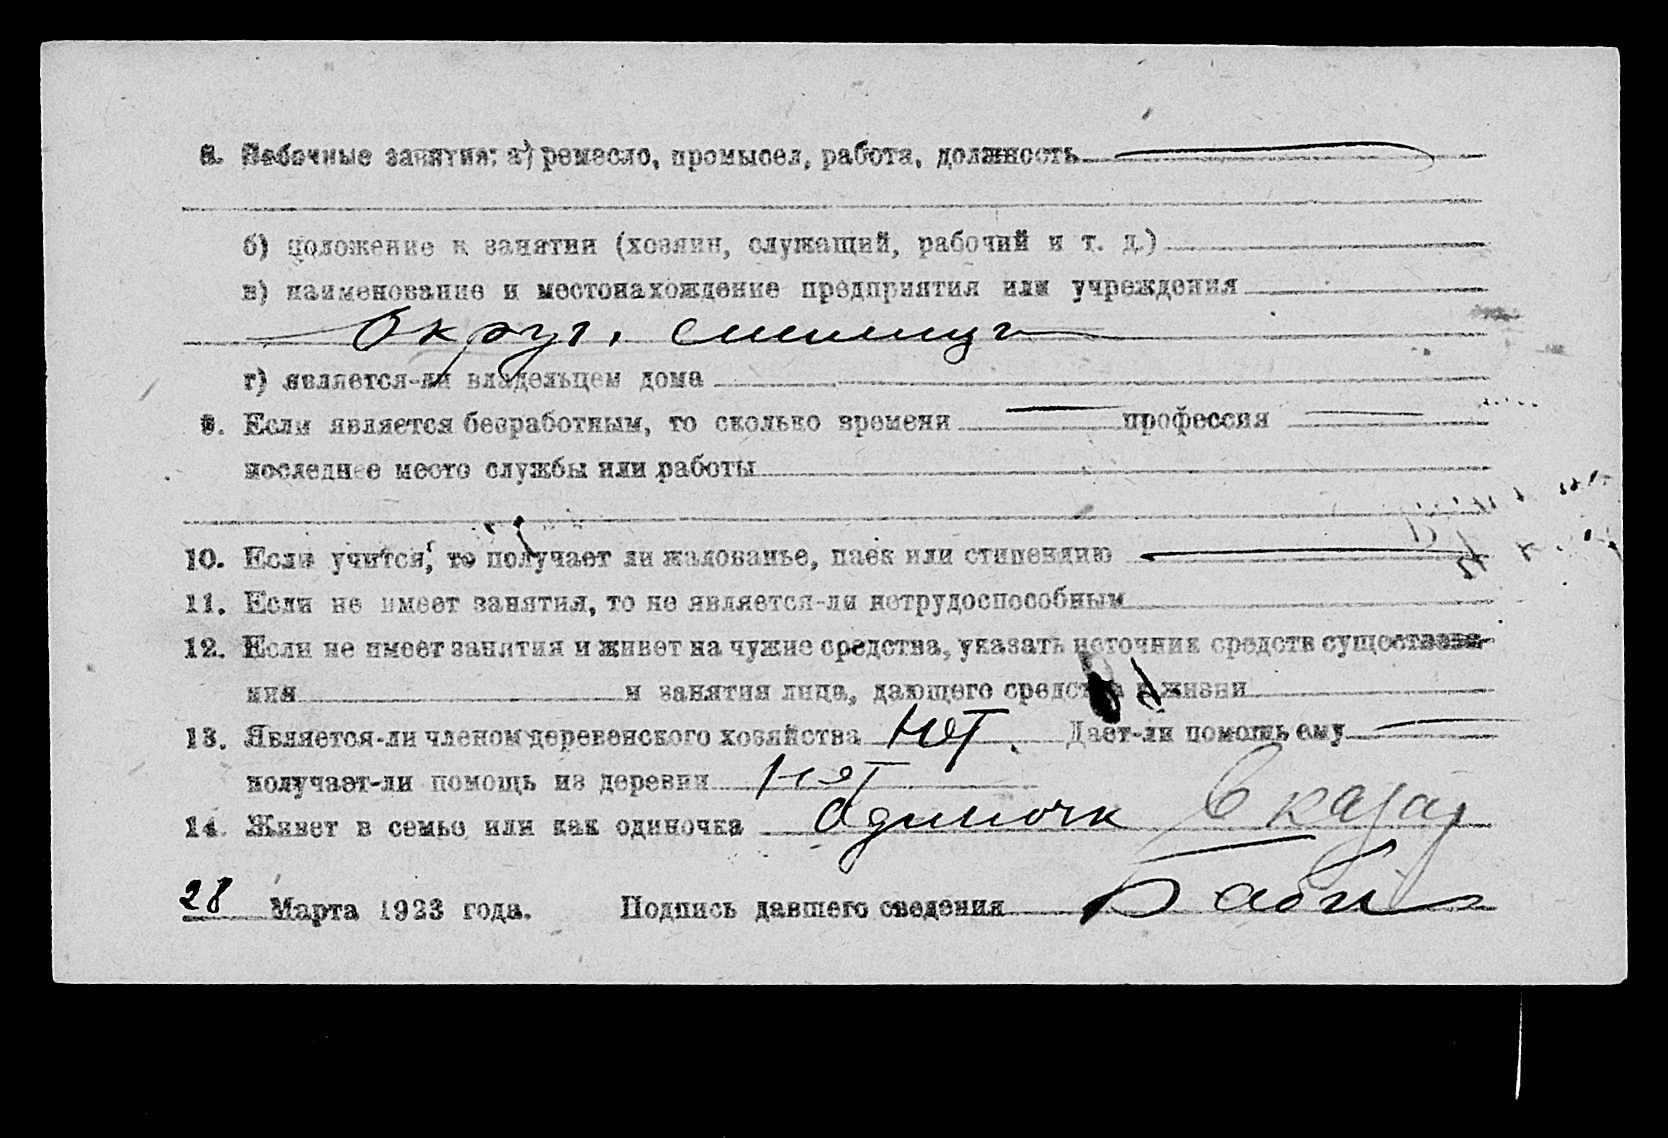 8. Побочные занятия: а) ремесло, промысел, работа, должность
б) положение в занятии (хозяин, служащий, рабочий и т. д.)
в) наименование и местонахождение предприятия или учреждения
Округ.
г) является-ли владельцем дома
9. Если является безработным, то сколько времени профессия
последнее место службы или работы
10. Если учится, то получает ли жалованье, паек или стипендию
11. Если не имеет занятия, то не является-ли нетрудоспособным
12. Если не имеет занятия и живет на чужие средства, указать источник средств существова-
ния и занятия лица, дающего средства к жизни
13. Является-ли членом деревенского хозяйства Нет. Дает-ли помощь ему
получает-ли помощь из деревни нет
14. Живет в семье или как одиночка Одиночк
28 Марта 1923 года. Подпись давшего сведения